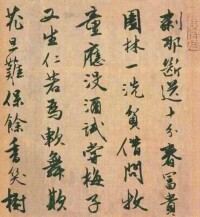 刹那斷送十分春富貴
園林一洗貧借問牧
童應没酒試嘗梅子
又生仁若為軟舞欺
花旦難保餘香笑樹